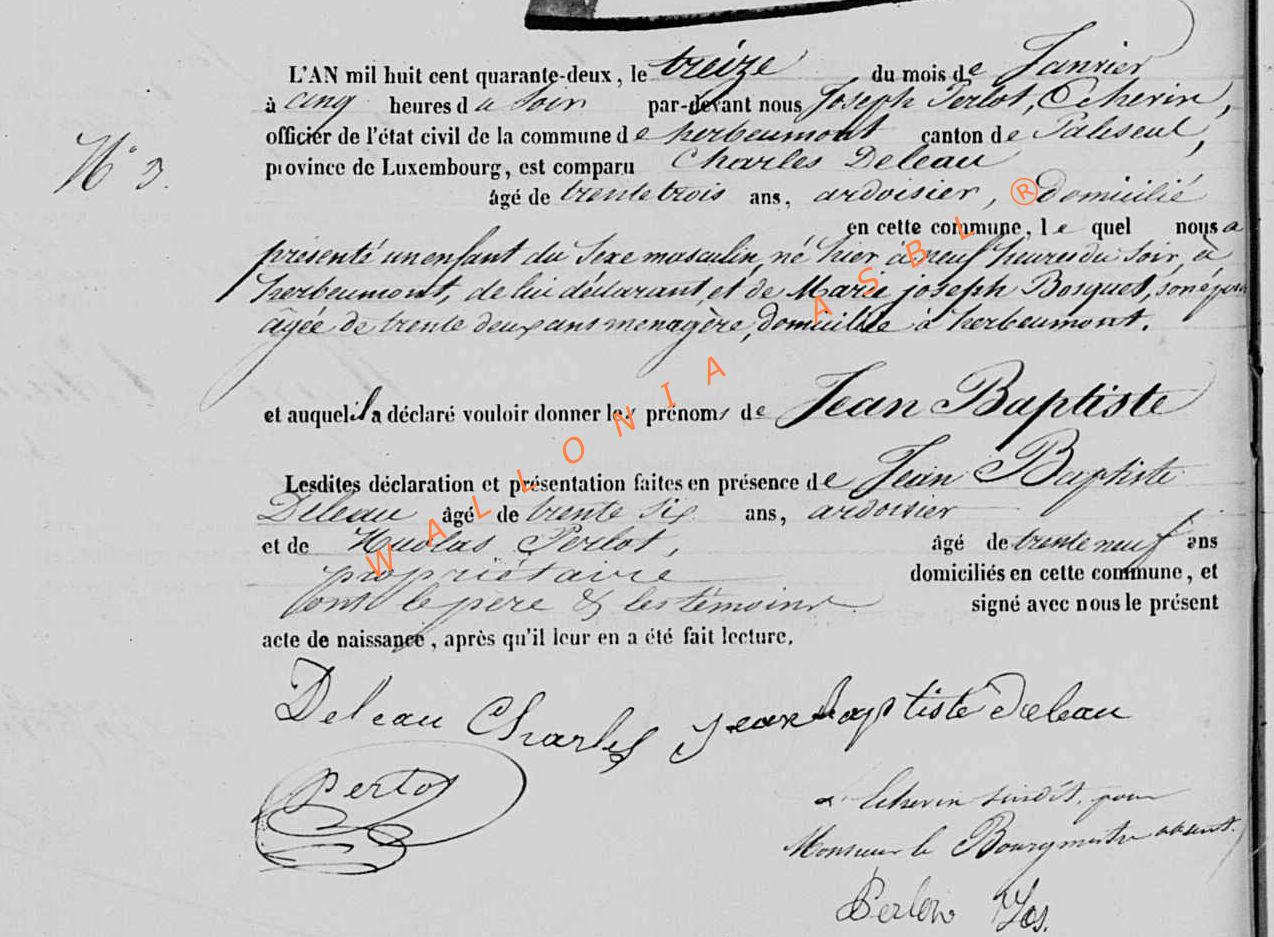 L'AN mil huit cent quarante-deux, le treize du mois de Janvier
à cinq heures du Soir par-devant nous Joseph Perlot, Echevin,
officier de l'état civil de la commune de herbeumont canton de Paliseul,
province de Luxembourg, est comparu Charles Deleau
N° 3.
âgé de trente trois ans, ardoisier, Domicilié
en cette commune, le quel nous a
présenté un enfant du Sexe masculin, né hier à neuf heures du Soir, à
herbeumont, de lui déclarant, et de Marie joseph Bosquet, son épouse
âgée de trente deux ans menagère, domiciliée à herbeumont.
et auquel il a déclaré vouloir donner les prénoms de Jean Baptiste
Lesdites déclaration et présentation faites en présence de Jean Baptiste
Deleau âgé de trente six ans, ardoisier
et de Nicolas Perlot, âgé de trente neuf ans
propriétaire domiciliés en cette commune, et
ont le père & les témoins signé avec nous le présent
acte de naissance, après qu'il leur en a été fait lecture.
Deleau Charles Jean baptiste deleau
Perlot
Echevin susdit, pour
Monsieur le Bourgmestre absent.
Perlot Jos.
WALLONIA ASBL ®